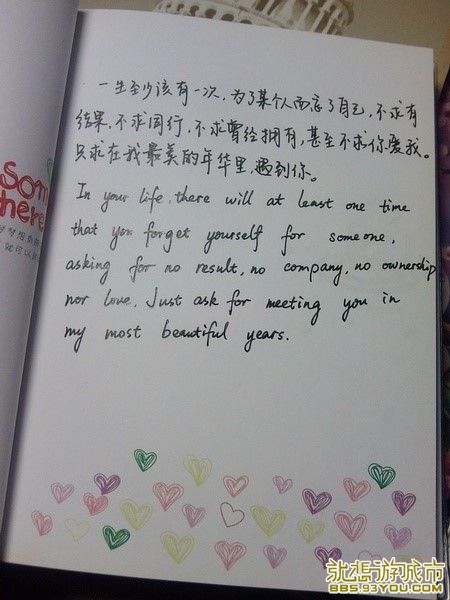 一生至少该有一次,为了某个人而忘了自己,不求有
结果,不求同行,不求曾经拥有,甚至不求你爱我。
只求在我最美的年华里,遇到你。
In your life, there will at least one time
that you forget yourself for someone,
asking for no result, no company, no ownership
nor love. Just ask for meeting you in
my most beautiful years.
som
here
就可以
游城市
BBS.93YOU.COM